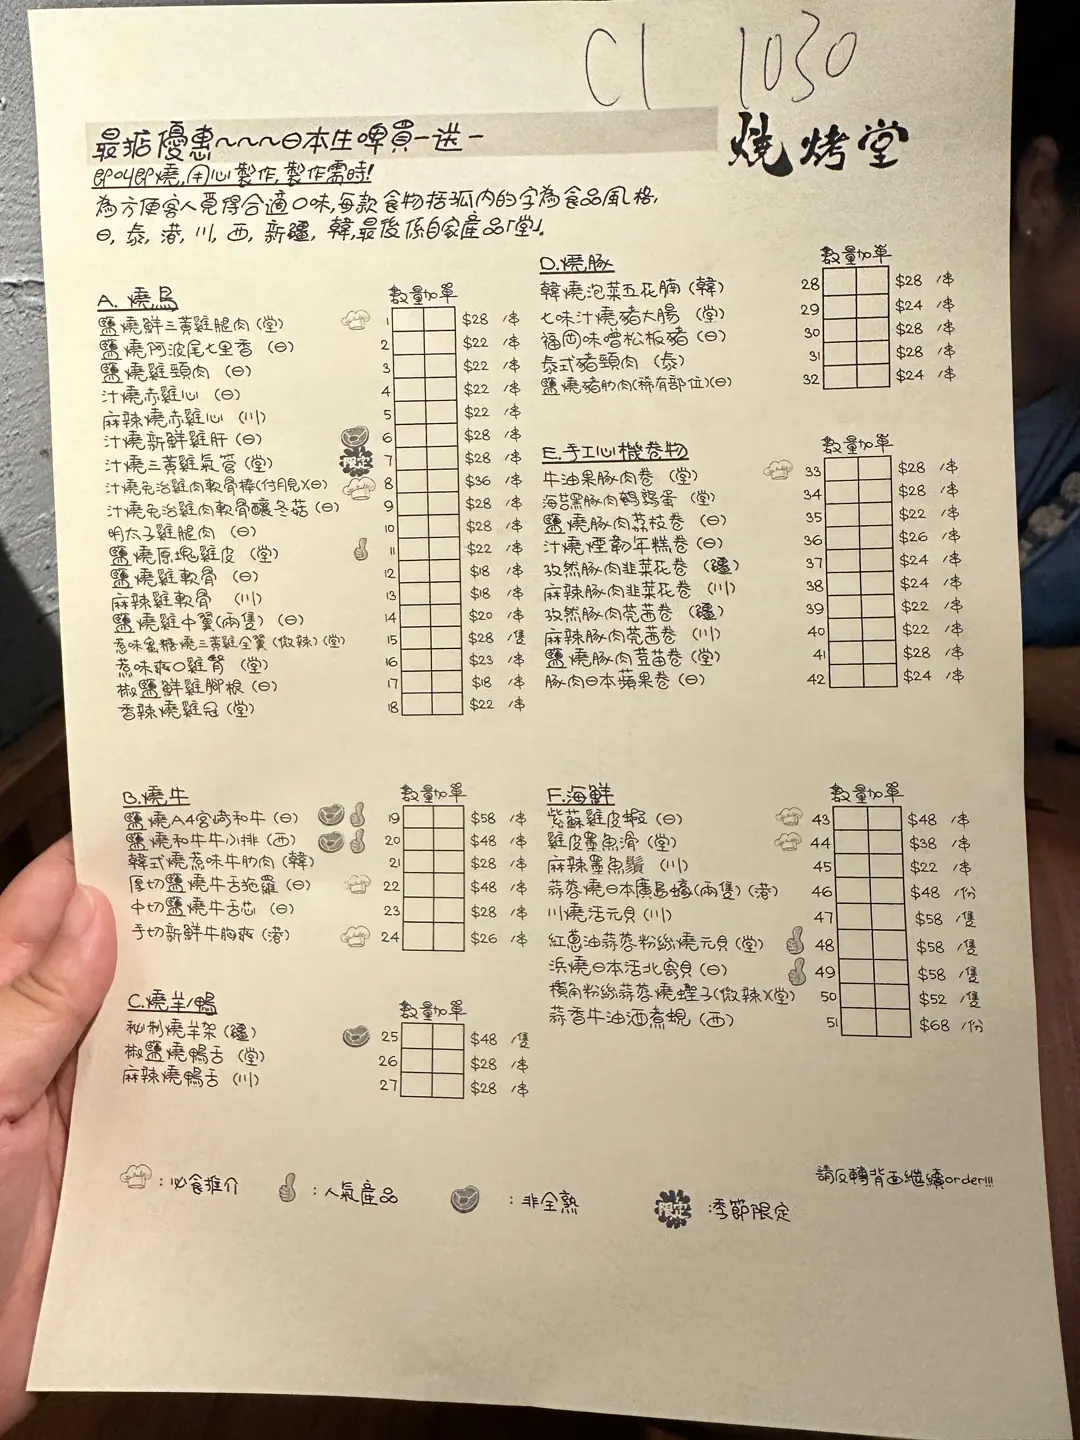 C1 1030
最抵優惠~~~日本生啤買一送一
燒烤堂
即叫即燒,用心製作,製作需時!
為方便客人覓得合適口味,每款食物括弧內的字為食品風格,
日,泰,港,川,西,新疆,韓,最後係自家產品「堂」.
A. 燒鳥 數量 加單
鹽燒鮮三黃雞腿肉 (堂) 1 $28 /串
鹽燒阿波尾七里香 (日) 2 $22 /串
鹽燒雞頸肉 (日) 3 $22 /串
汁燒赤雞心 (日) 4 $22 /串
麻辣燒赤雞心 (川) 5 $22 /串
汁燒新鮮雞肝 (日) 6 $28 /串
汁燒三黃雞氣管 (堂) 限定 7 $28 /串
汁燒免治雞肉軟骨棒(付月見)(日) 8 $36 /串
汁燒免治雞肉軟骨釀冬菇 (日) 9 $28 /串
明太子雞腿肉 (日) 10 $28 /串
鹽燒原塊雞皮 (堂) 11 $22 /串
鹽燒雞軟骨 (日) 12 $18 /串
麻辣雞軟骨 (川) 13 $18 /串
鹽燒雞中翼(兩隻) (日) 14 $20 /串
惹味蜜糖燒三黃雞全翼 (微辣) (堂) 15 $28 /隻
惹味爽口雞腎 (堂) 16 $23 /串
椒鹽鮮雞腳根 (日) 17 $18 /串
香辣燒雞冠 (堂) 18 $22 /串
B. 燒牛 數量 加單
鹽燒A4宮崎和牛 (日) 19 $58 /串
鹽燒和牛牛小排 (西) 20 $48 /串
韓式燒惹味牛肋肉 (韓) 21 $28 /串
厚切鹽燒牛舌拖羅 (日) 22 $48 /串
中切鹽燒牛舌芯 (日) 23 $28 /串
手切新鮮牛胸爽 (港) 24 $26 /串
C. 燒羊/鴨 數量 加單
秘制燒羊架 (疆) 25 $48 /隻
椒鹽燒鴨舌 (堂) 26 $28 /串
麻辣燒鴨舌 (川) 27 $28 /串
D. 燒豚 數量 加單
韓燒泡菜五花腩 (韓) 28 $28 /串
七味汁燒豬大腸 (堂) 29 $24 /串
福岡味噌松板豬 (日) 30 $28 /串
泰式豬頸肉 (泰) 31 $28 /串
鹽燒豬肋肉(稀有部位)(日) 32 $24 /串
E. 手工心機卷物 數量 加單
牛油果豚肉卷 (堂) 33 $28 /串
海苔黑豚肉鵪鶉蛋 (堂) 34 $28 /串
鹽燒豚肉荔枝卷 (日) 35 $22 /串
汁燒煙韌年糕卷 (日) 36 $26 /串
孜然豚肉韭菜花卷 (疆) 37 $24 /串
麻辣豚肉韭菜花卷 (川) 38 $24 /串
孜然豚肉芫茜卷 (疆) 39 $22 /串
麻辣豚肉芫茜卷 (川) 40 $22 /串
鹽燒豚肉荳苗卷 (堂) 41 $28 /串
豚肉日本蘋果卷 (日) 42 $24 /串
F. 海鮮 數量 加單
紫蘇雞皮蝦 (日) 43 $48 /串
雞皮墨魚滑 (堂) 44 $38 /串
麻辣墨魚鬚 (川) 45 $22 /串
蒜蓉燒日本廣島蠔(兩隻) (港) 46 $48 /份
川燒活元貝 (川) 47 $58 /隻
紅蔥油蒜蓉粉絲燒元貝 (堂) 48 $58 /隻
浜燒日本活北寄貝 (日) 49 $58 /隻
欖角粉絲蒜蓉燒蟶子(微辣)(堂) 50 $52 /隻
蒜香牛油酒煮蜆 (西) 51 $68 /份
請反轉背面繼續order!!!
: 必食推介 : 人氣產品 : 非全熟 限定 : 季節限定